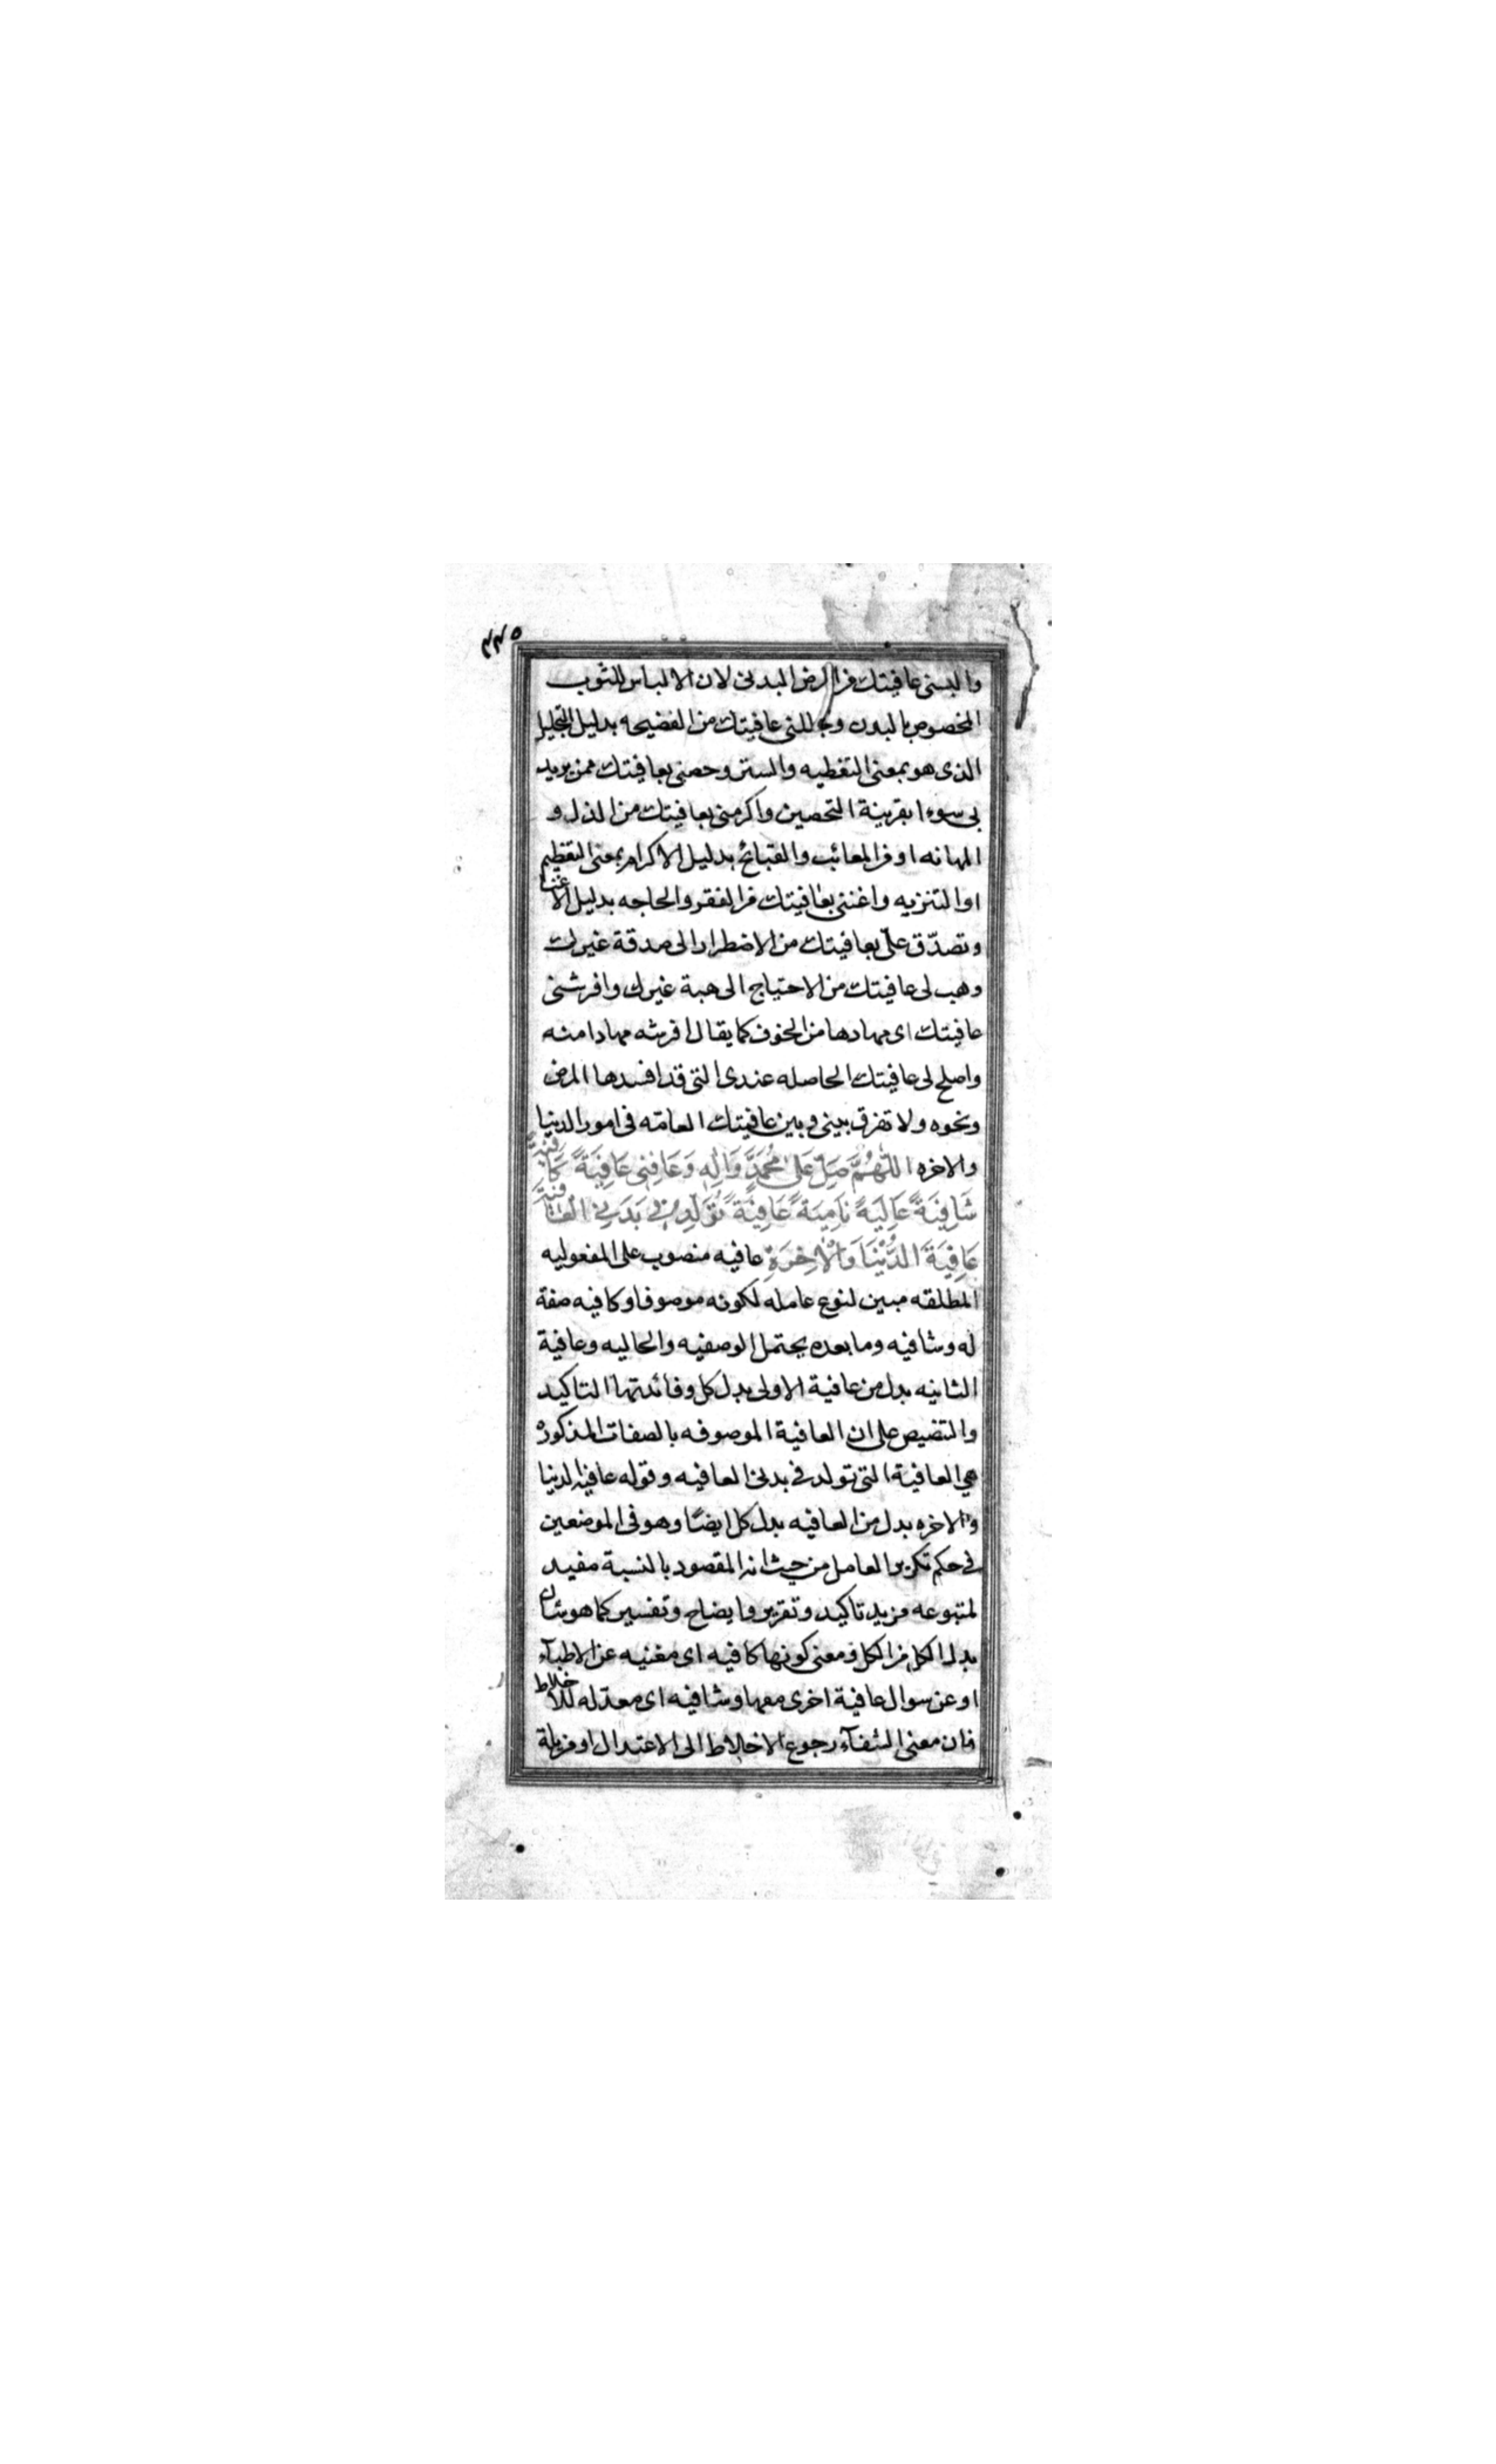 ٣٣٥
والبسنى عافيتك من المرض البدنى لان الالباس للثوب
المخصوص بالبدن وجللنى عافيتك من الفضيحه بدليل التجليل
الذى هو بمعنى التغطيه والستر وحصنى بعافيتك ممن يريد
بى سوءا بقرينة التحصين واكرمنى بعافيتك من الذل و
المهانه او من المعائب والقبائح بدليل الاكرام بمعنى التعظيم
او التنزيه واغننى بعافيتك من الفقر والحاجه بدليل الاغناء
وتصدّق علىّ بعافيتك من الاضطرار الى صدقة غيرك
وهب لى عافيتك من الاحتياج الى هبة غيرك وافرشنى
عافيتك اى مهادها من الخوف كما يقال افرشه مهاد امنه
واصلح لى عافيتك الحاصله عندى التى قد افسدها المرض
ونحوه ولا تفرق بينى وبين عافيتك العامّه فى امور الدنيا
والاخره اَللّٰهُمَّ صَلِّ عَلىٰ مُحَمَّدٍ وَاٰلِهِ وَعَافِنِى عَافِيَةً كَافِيَةً
شَافِيَةً عَالِيَةً نَامِيَةً عَافِيَةً تُوَلِّدُ فِى بَدَنِى الْعَافِيَةَ
عَافِيَةَ الدُّنْيَا وَالْاٰخِرَةِ عافيه منصوب على المفعوليه
المطلقه مبين لنوع عامله لكونه موصوفا وكافيه صفة
له وشافيه وما بعده يحتمل الوصفيه والحاليه وعافية
الثانيه بدل من عافية الاولى بدل كل وفائدتها التاكيد
والتنصيص على ان العافية الموصوفه بالصفات المذكوره
هى العافية التى تولد فى بدنى العافيه وقوله عافية الدنيا
والاخره بدل من العافيه بدل كل ايضًا وهو فى الموضعين
فى حكم تكرير العامل من حيث انه المقصود بالنسبة مفيد
لمتبوعه مزيد تاكيد وتقرير وايضاح وتفسير كما هو شان
بدل الكل من الكل ومعنى كونها كافيه اى مغنيه عن الاطبآء
او عن سوال عافية اخرى معها وشافيه اى معدّله للاخلاط
فان معنى الشفآء رجوع الاخلاط الى الاعتدال او مزيلة